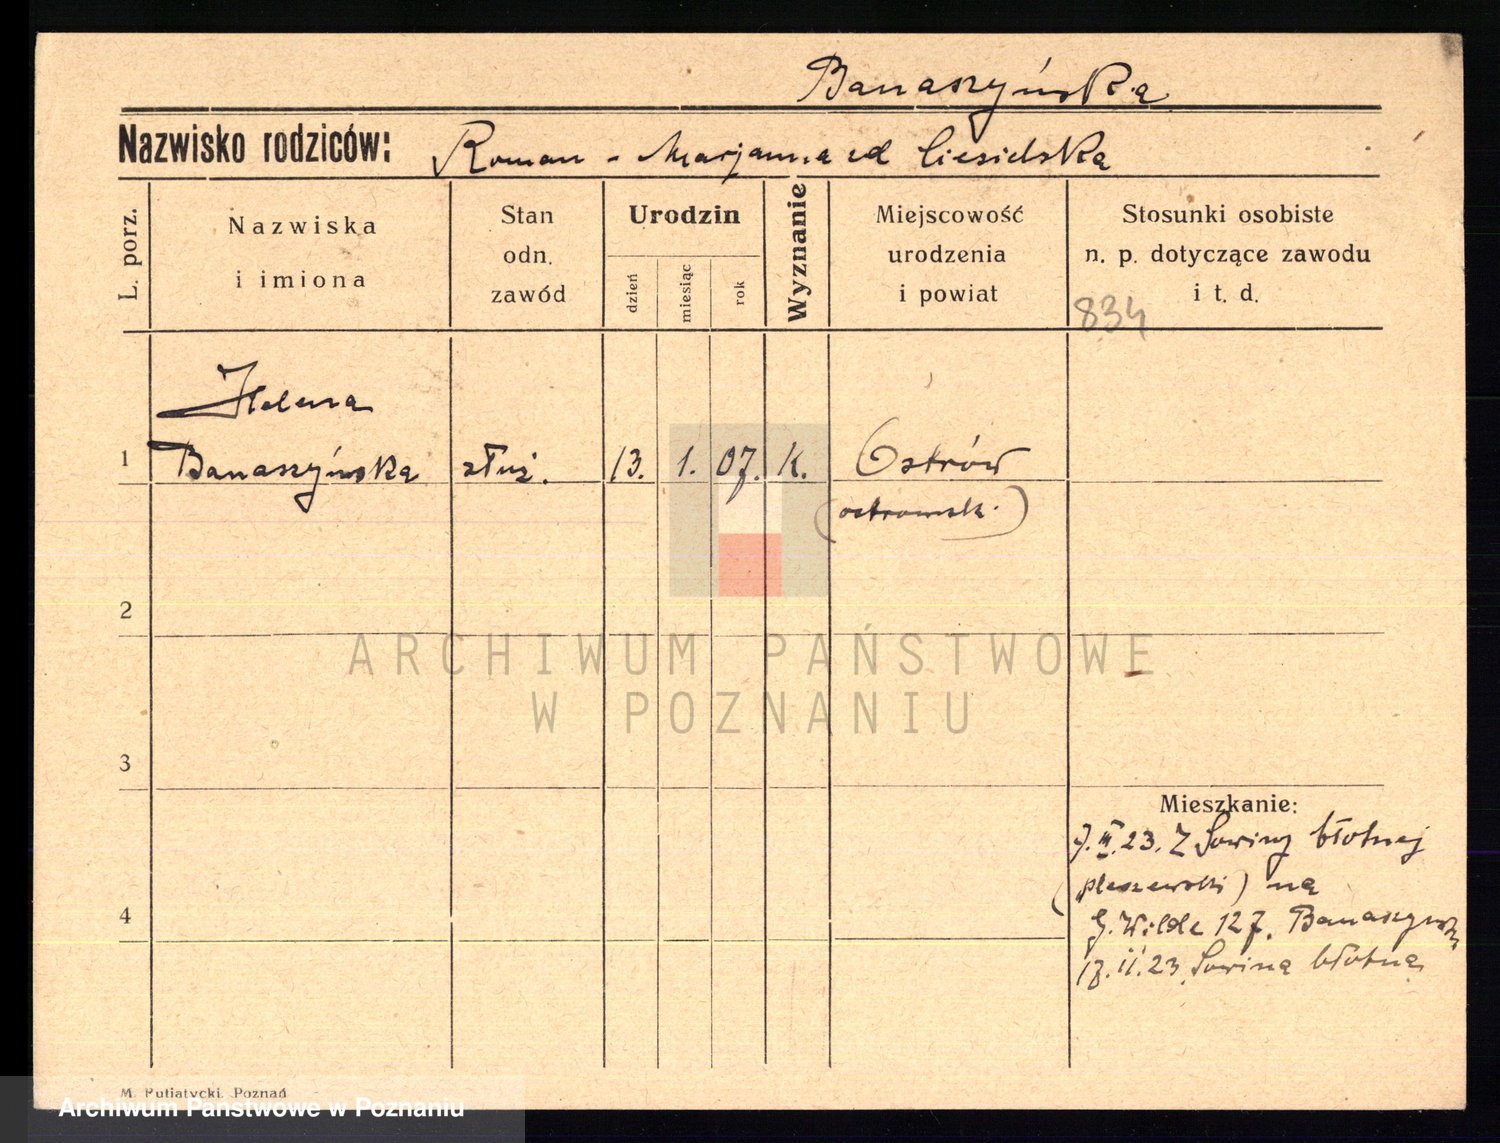 Banaszyńska
Nazwisko rodziców: Roman - Marjanna zd Ciesielska
L. porz.
Nazwiska
i imiona
Stan
odn.
zawód
Urodzin
dzień
miesiąc
rok
Wyznanie
Miejscowość
urodzenia
i powiat
Stosunki osobiste
n. p. dotyczące zawodu
i t. d.
834
Helena
1 Banaszyńska służ. 13. 1. 07. K. Ostrów
(ostrowsk.)
2
ARCHIWUM PAŃSTWOWE
W POZNANIU
3
Mieszkanie:
23. Z Sowiny błotnej
(pleszewski) na
4
G. Wilde 127. Banaszyńsk
II.23 Sowina błotna
M. Putiatycki, Poznań
Archiwum Państwowe w Poznaniu